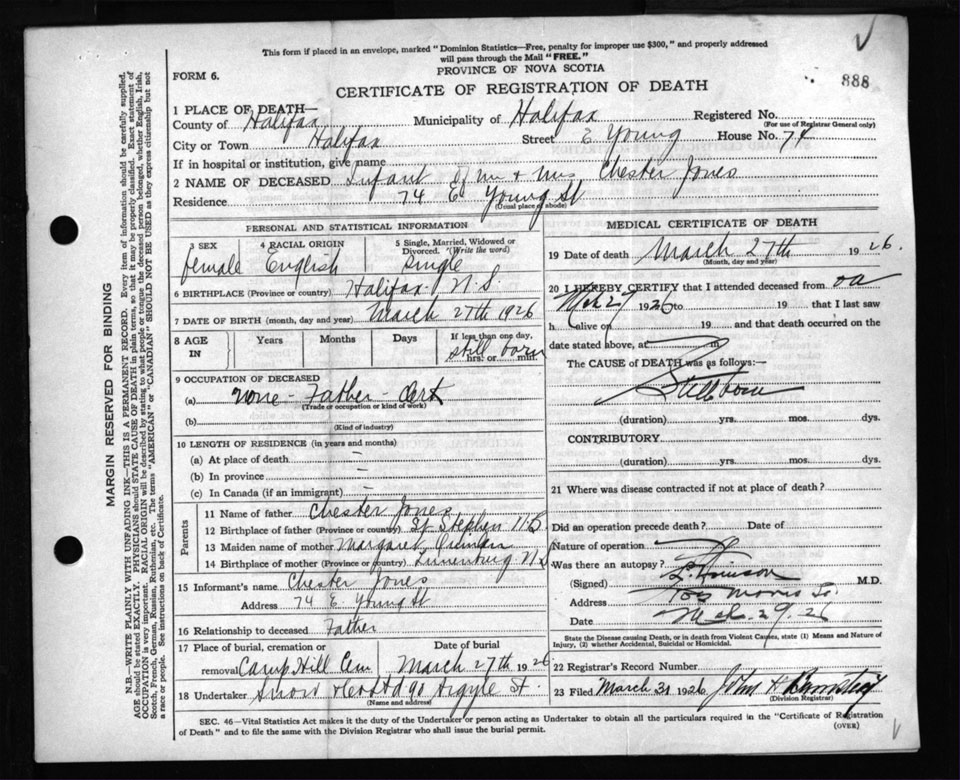 This form if placed in an envelope, marked "Dominion Statistics—Free, penalty for improper use $300," and properly addressed
will pass through the Mail "FREE."
PROVINCE OF NOVA SCOTIA
FORM 6.
888
CERTIFICATE OF REGISTRATION OF DEATH
1 PLACE OF DEATH—
County of Halifax Municipality of Halifax Registered No.
(For use of Registrar General only)
City or Town Halifax Street E Young House No. 74
If in hospital or institution, give name
2 NAME OF DECEASED Infant of Mr + Mrs Chester Jones
Residence 74 E Young St
(Usual place of abode)
PERSONAL AND STATISTICAL INFORMATION
3 SEX 4 RACIAL ORIGIN 5 Single, Married, Widowed or Divorced. (Write the word)
female English Single
6 BIRTHPLACE (Province or country) Halifax N.S.
7 DATE OF BIRTH (month, day and year) March 27th 1926
8 AGE IN Years Months Days If less than one day,
still born hrs. or min.
9 OCCUPATION OF DECEASED
(a) none - Father -
(Trade or occupation or kind of work)
(b)
(Kind of industry)
10 LENGTH OF RESIDENCE (in years and months)
(a) At place of death
(b) In province
(c) In Canada (if an immigrant)
Parents
11 Name of father Chester Jones
12 Birthplace of father (Province or country) St Stephen N B
13 Maiden name of mother Margaret
14 Birthplace of mother (Province or country) Lunenburg N S
15 Informant's name Chester Jones
Address 74 E Young St
16 Relationship to deceased Father
17 Place of burial, cremation or removal Camp Hill Cem Date of burial March 27th 1926
18 Undertaker Snow + Co 90 Argyle St.
(Name and address)
MEDICAL CERTIFICATE OF DEATH
19 Date of death March 27th 1926.
(Month, day and year)
20 I HEREBY CERTIFY that I attended deceased from
Mch 27 1926 to 19 that I last saw
h alive on 19 and that death occurred on the
date stated above, at m
The CAUSE OF DEATH was as follows:—
Stillborn
(duration) yrs. mos. dys.
CONTRIBUTORY
(duration) yrs. mos. dys.
21 Where was disease contracted if not at place of death?
Did an operation precede death? Date of
Nature of operation
Was there an autopsy?
(Signed) M.D.
Address Morris St.
Date Mch. 29. 26
State the Disease causing Death, or in death from Violent Causes, state (1) Means and Nature of
Injury, (2) whether Accidental, Suicidal or Homicidal.
22 Registrar's Record Number
23 Filed March 31 1926 John A
(Division Registrar)
SEC. 46—Vital Statistics Act makes it the duty of the Undertaker or person acting as Undertaker to obtain all the particulars required in the "Certificate of Registration
of Death" and to file the same with the Division Registrar who shall issue the burial permit.
(OVER)
MARGIN RESERVED FOR BINDING
N.B.—WRITE PLAINLY WITH UNFADING INK—THIS IS A PERMANENT RECORD. Every item of information should be carefully supplied.
AGE should be stated EXACTLY. PHYSICIANS should STATE CAUSE OF DEATH in plain terms, so that it may be properly classified. Exact statement of
OCCUPATION is very important. RACIAL ORIGIN will be described by stating to what people or tongue the deceased person belonged, whether English, Irish,
Scotch, French, German, Russian, Ruthenian, etc. The terms "AMERICAN" or "CANADIAN" SHOULD NOT BE USED as they express citizenship but not
a race or people. See instructions on back of Certificate.